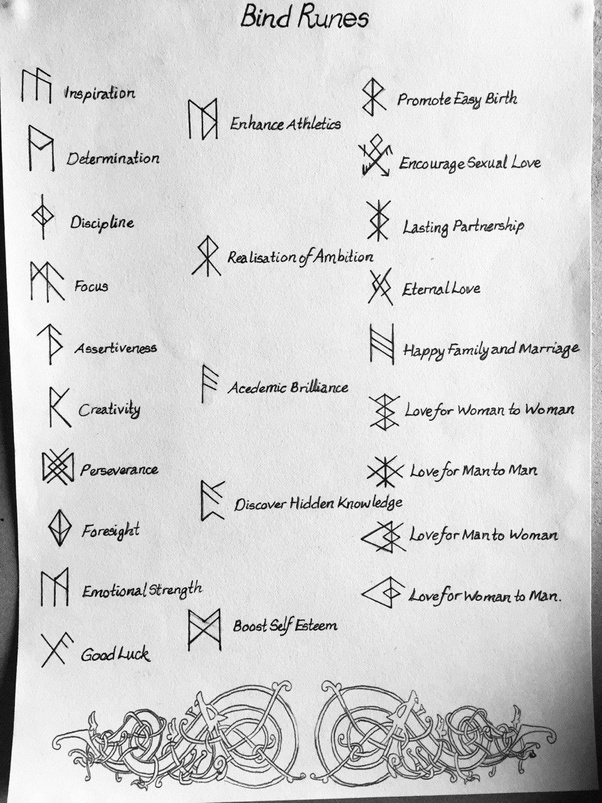 Bind Runes
Inspiration
Determination
Discipline
Focus
Assertiveness
Creativity
Perseverance
Foresight
Emotional Strength
Good Luck
Enhance Athletics
Realisation of Ambition
Acedemic Brilliance
Discover Hidden Knowledge
Boost Self Esteem
Promote Easy Birth
Encourage Sexual Love
Lasting Partnership
Eternal Love
Happy Family and Marriage
Love for Woman to Woman
Love for Man to Man
Love for Man to Woman
Love for Woman to Man.